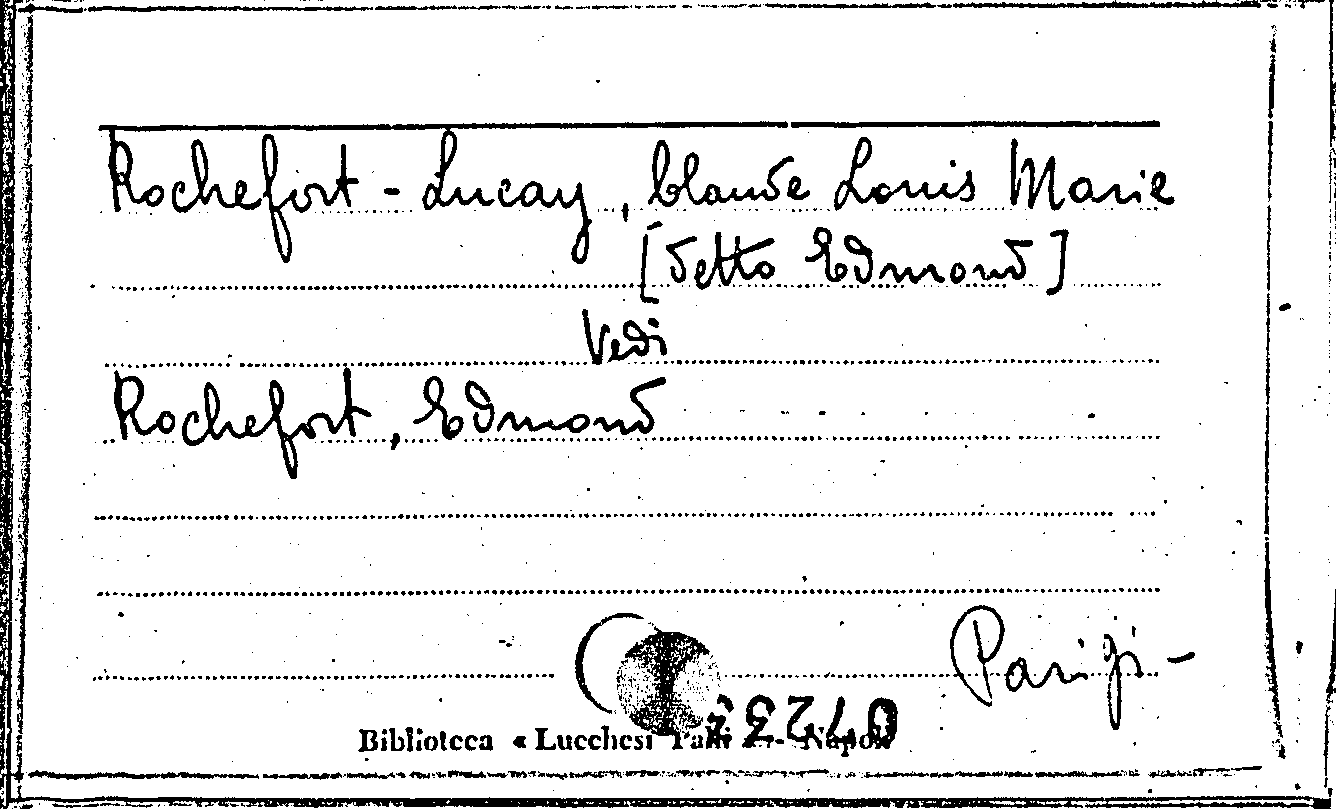 Rochefort - Lucay, Claude Louis Marie
[detto Edmond]
Vedi
Rochefort, Edmond
Parigi -
Biblioteca « Lucchesi Palli » - Napoli